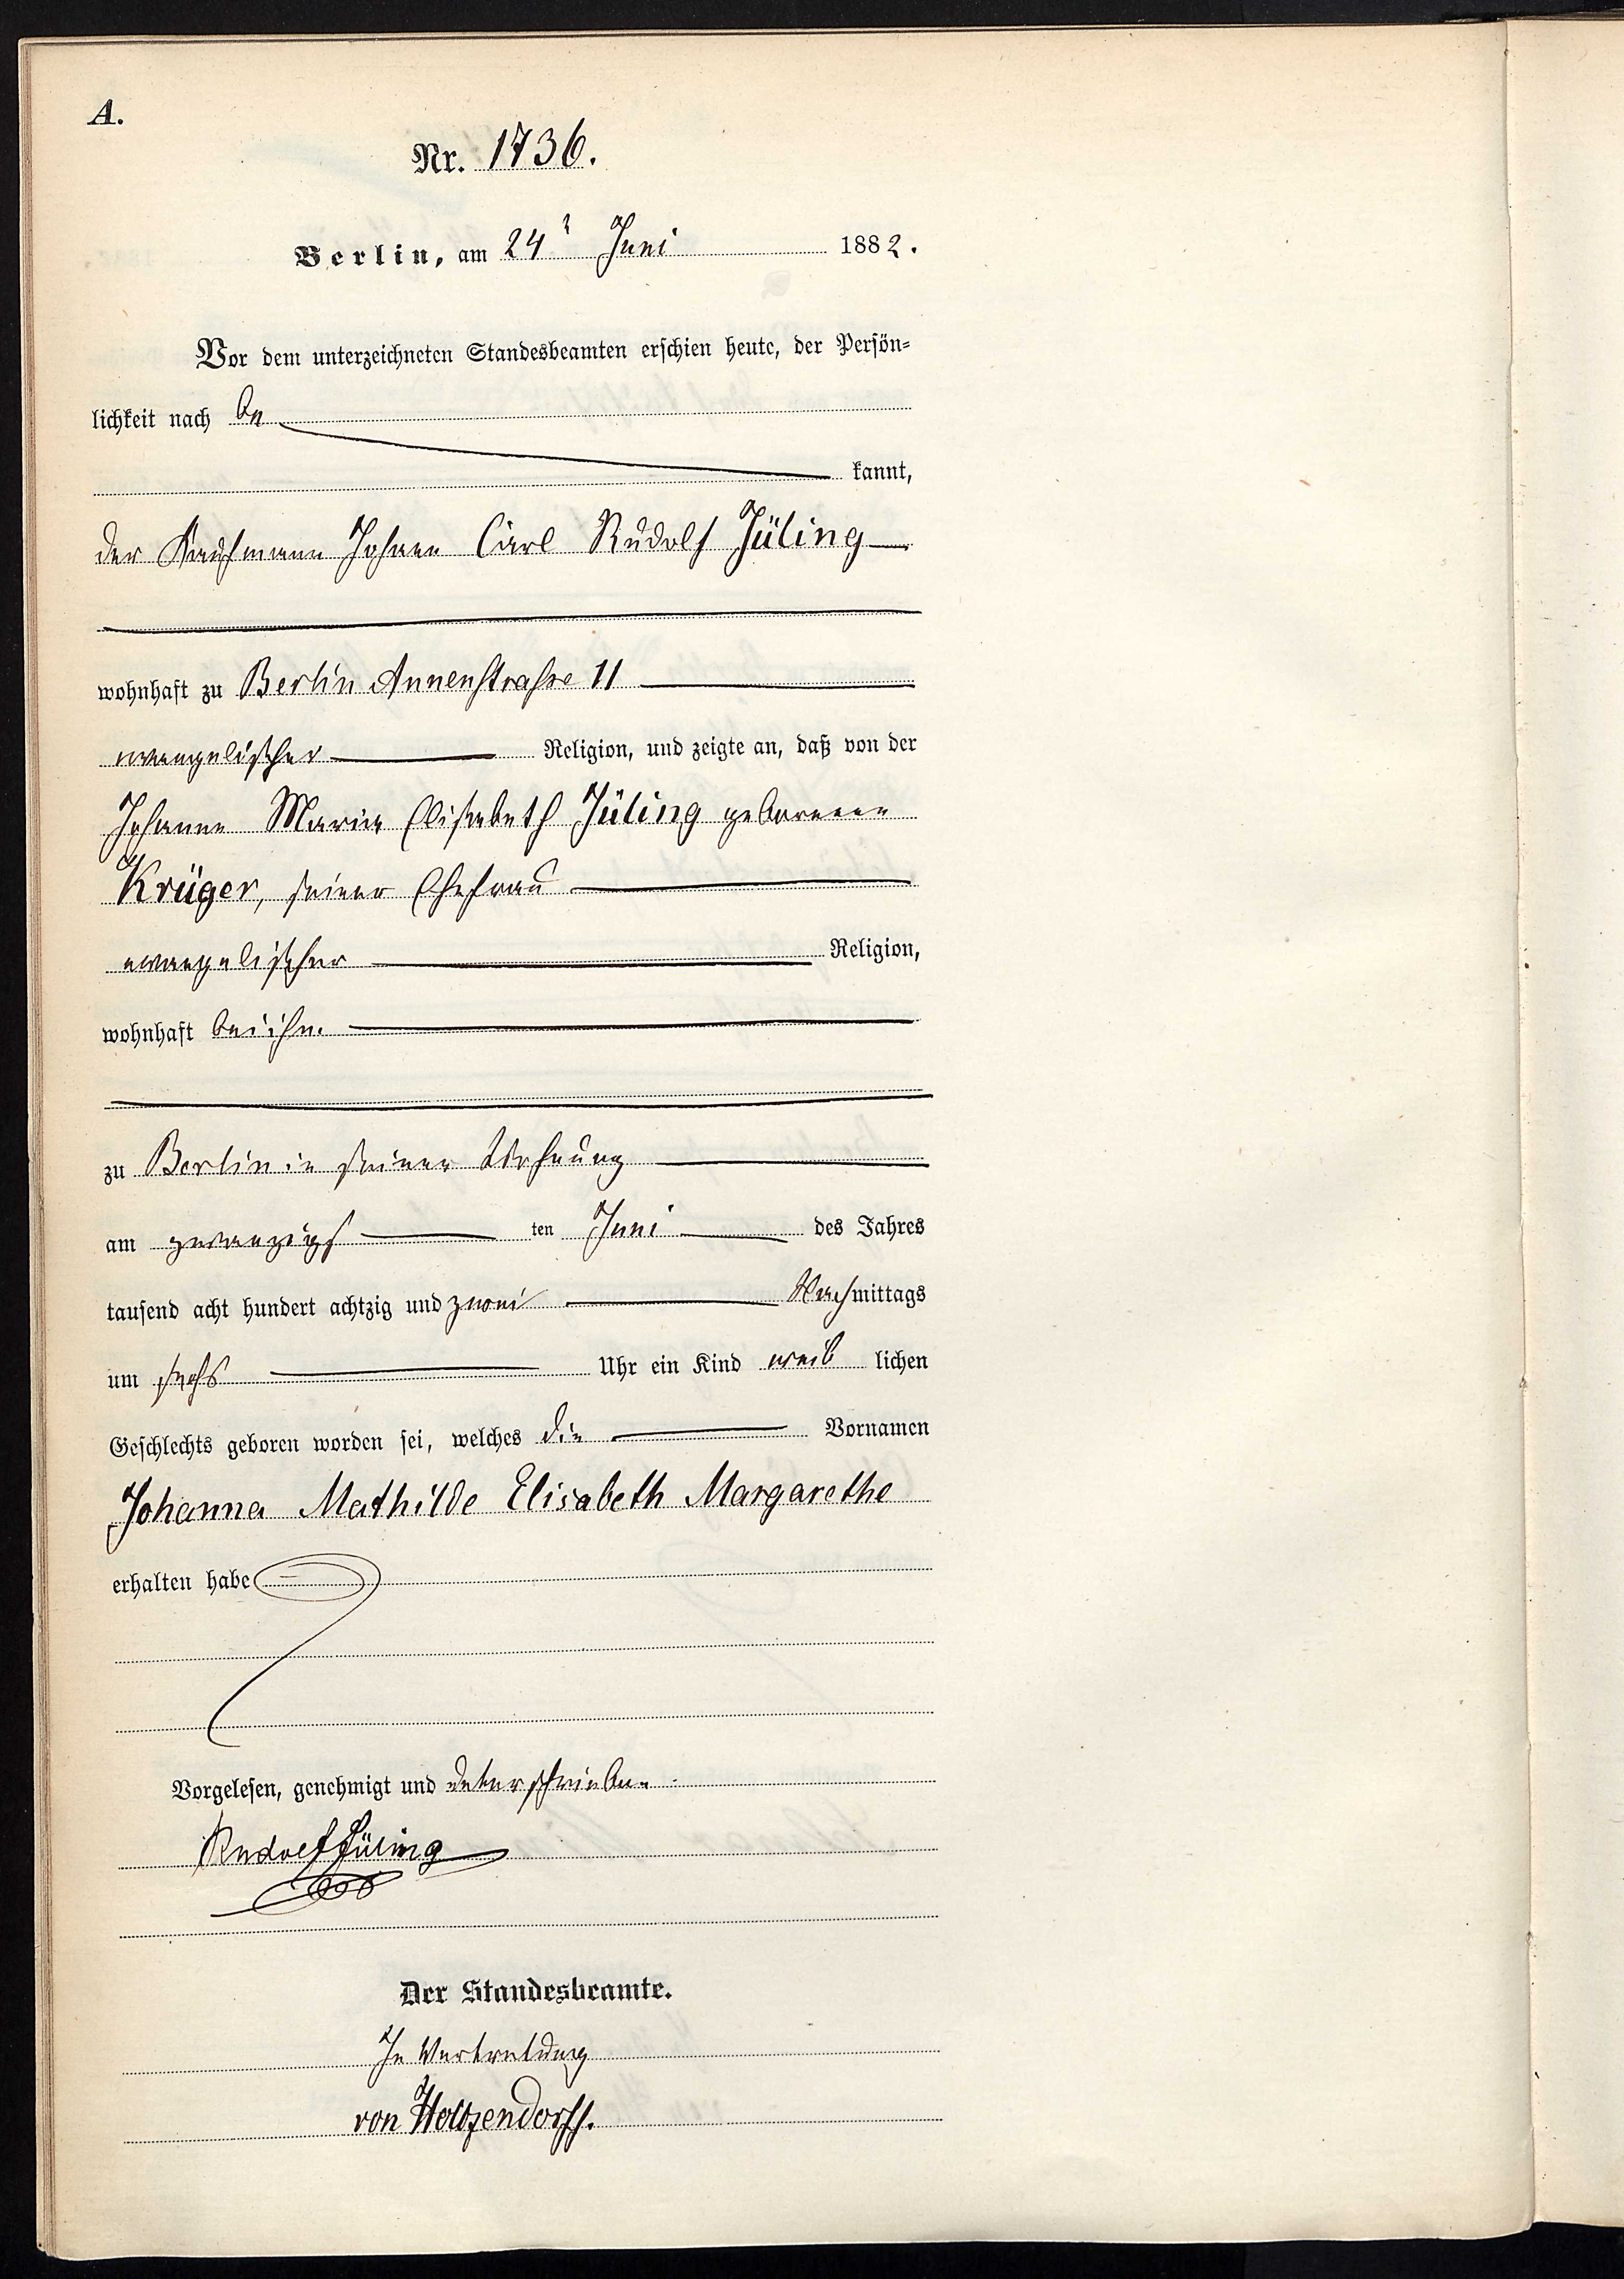 A.
Nr. 1736.
Berlin, am 24ᵗ Juni 1882.
Vor dem unterzeichneten Standesbeamten erschien heute, der Persön-
lichkeit nach be
kannt,
der Kaufmann Johann Carl Rudolf Jüling
wohnhaft zu Berlin Annenstraße 11
evangelischer Religion, und zeigte an, daß von der
Johanne Marie Elisabeth Jüling geborenen
Krüger, seiner Ehefrau
evangelischer Religion,
wohnhaft bei ihm
zu Berlin in seiner Wohnung
am zwanzigs ten Juni des Jahres
tausend acht hundert achtzig und zwei Nachmittags
um sechs Uhr ein Kind weib lichen
Geschlechts geboren worden sei, welches die Vornamen
Johanna Mathilde Elisabeth Margarethe
erhalten habe
Vorgelesen, genehmigt und unterschrieben
Rudolf Jüling
Der Standesbeamte.
In Vertretung
von Holtzendorff.